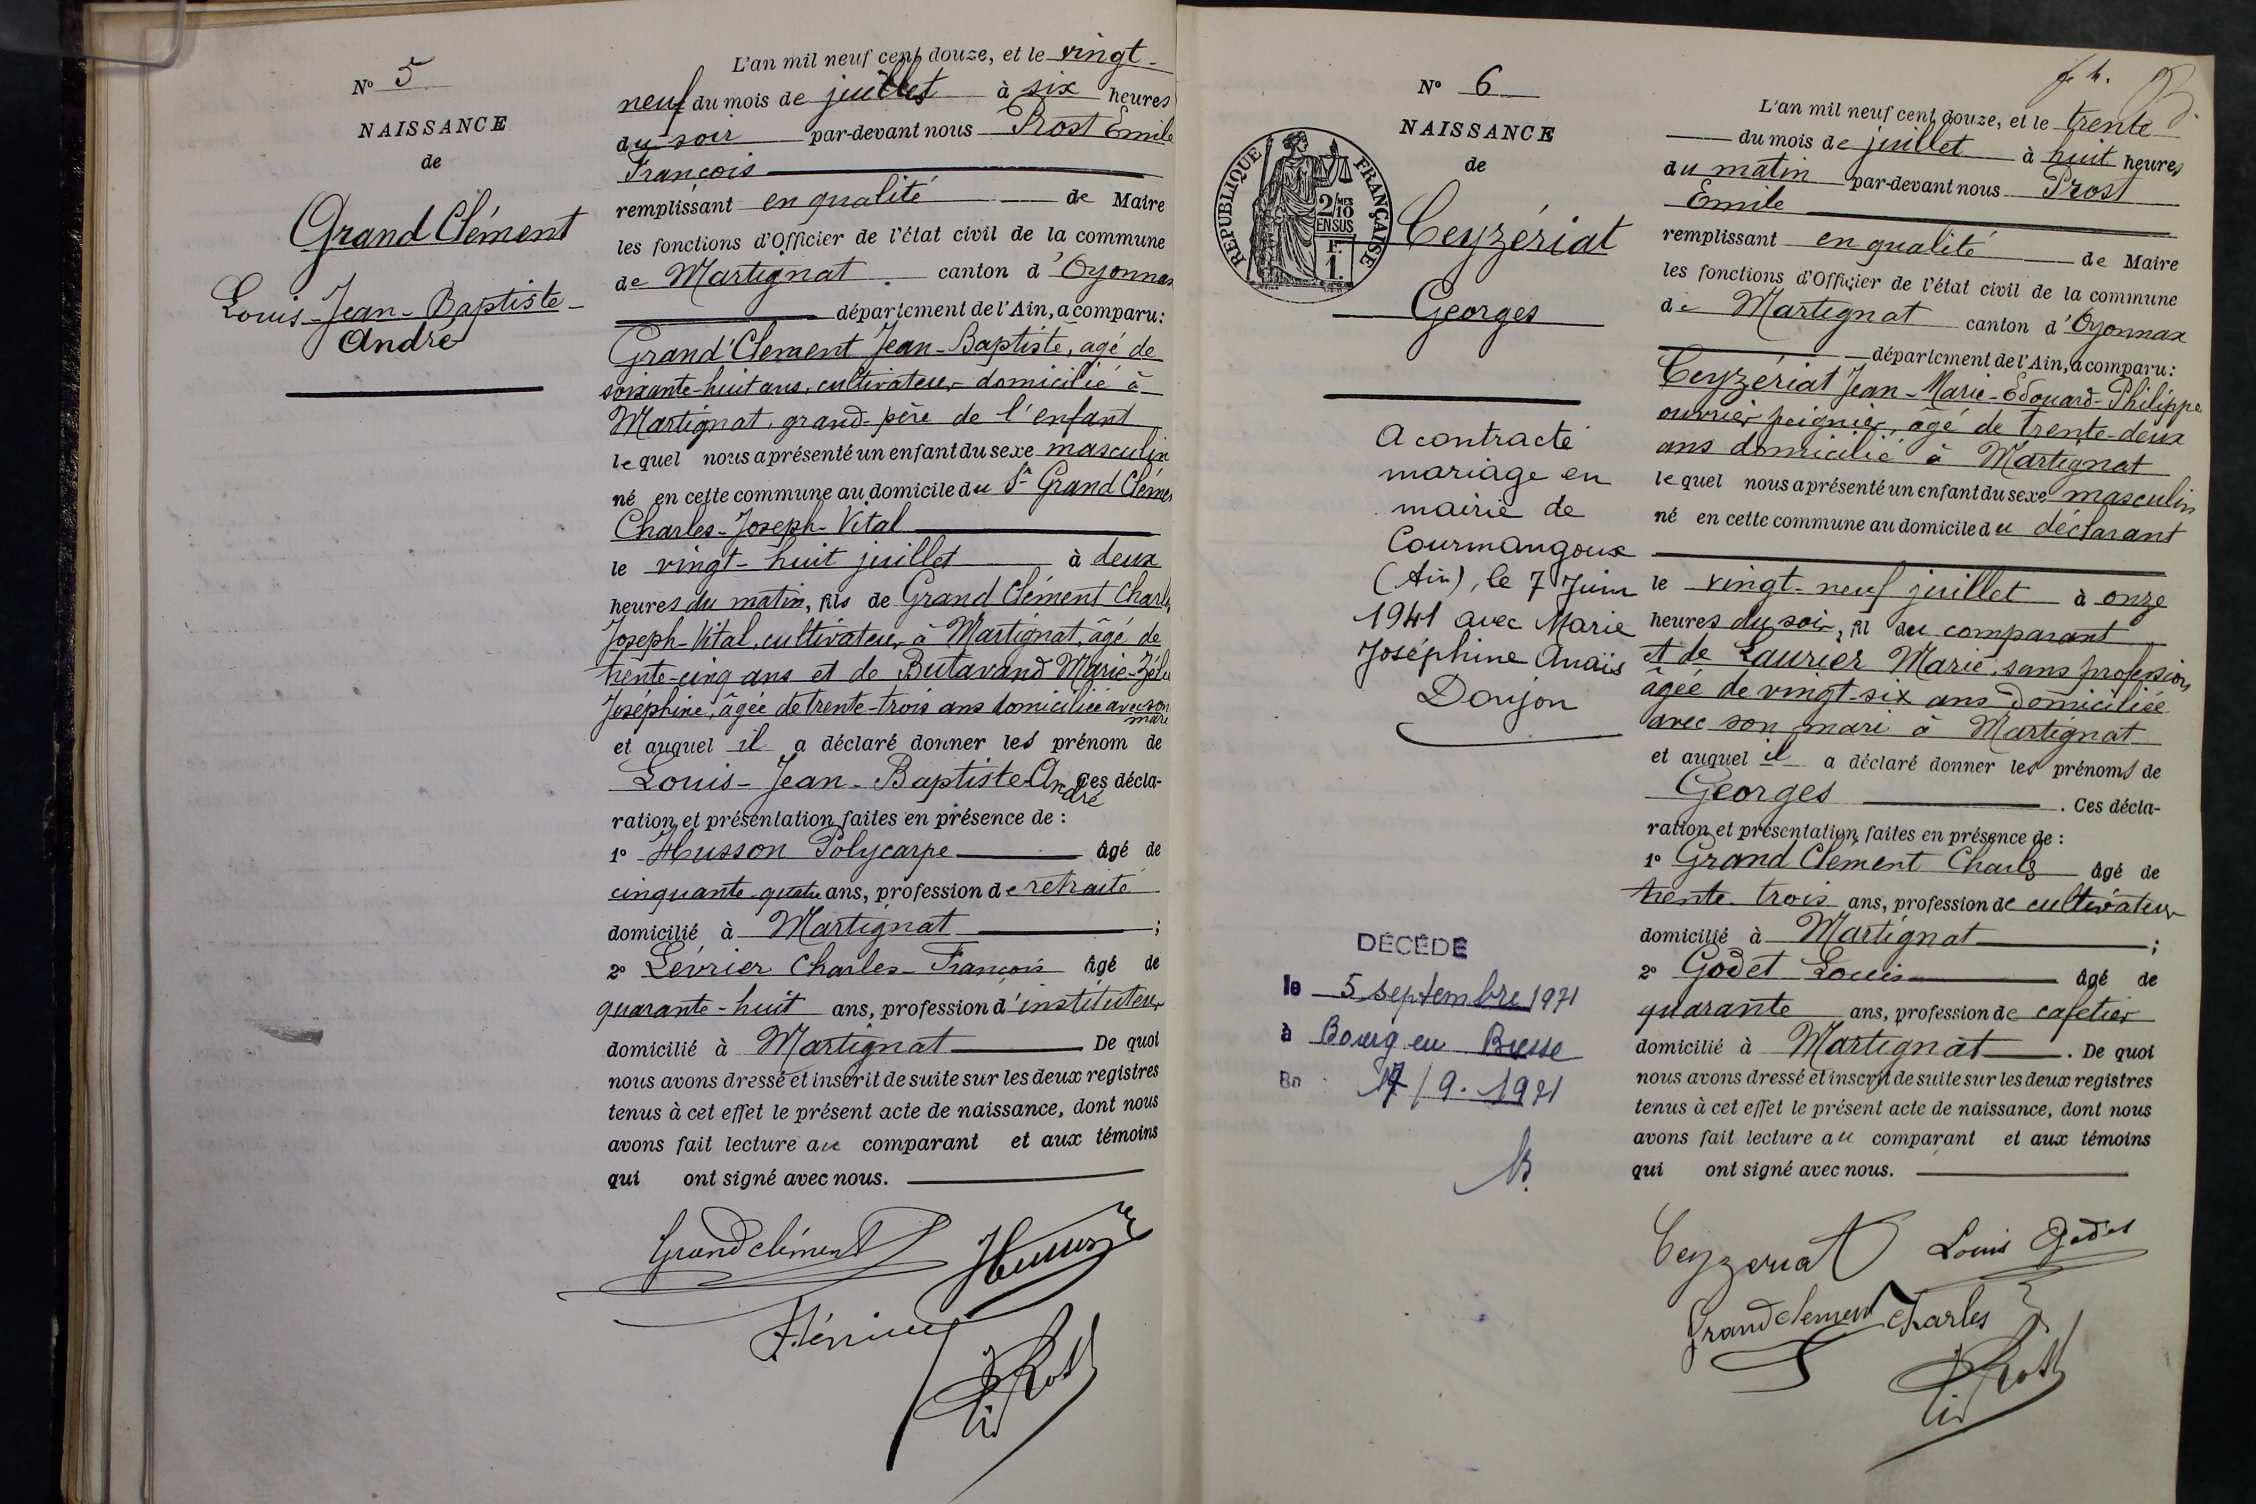 N° 5
NAISSANCE
de
Grand Clément
Louis-Jean-Baptiste-
André
L'an mil neuf cent douze, et le vingt-
neuf du mois de juillet à six heures
du soir par-devant nous Prost Emile
François
remplissant en qualité de Maire
les fonctions d'Officier de l'état civil de la commune
de Martignat canton d'Oyonnax
département de l'Ain, a comparu:
Grand'Clement Jean-Baptiste, agé de
soixante-huit ans, cultivateur domicilié à
Martignat, grand-père de l'enfant
lequel nous a présenté un enfant du sexe masculin
né en cette commune au domicile du Sr Grand Clément
Charles-Joseph-Vital
le vingt-huit juillet à deux
heures du matin, fils de Grand Clément Charles
Joseph-Vital, cultivateur à Martignat, âgé de
trente-cinq ans et de Butavand Marie-Zélie
Joséphine, âgée de trente-trois ans domiciliée avec son
mari
et auquel il a déclaré donner les prénom de
Louis-Jean-Baptiste André Ces décla-
ration et présentation faites en présence de :
1° Husson Polycarpe âgé de
cinquante-quatre ans, profession de retraité
domicilié à Martignat ;
2° Lévrier Charles-François âgé de
quarante-huit ans, profession d'instituteur
domicilié à Martignat De quoi
nous avons dressé et inscrit de suite sur les deux registres
tenus à cet effet le présent acte de naissance, dont nous
avons fait lecture au comparant et aux témoins
qui ont signé avec nous.
Grandclément Husson
N° 6
NAISSANCE
de
REPUBLIQUE FRANÇAISE
2/10 MES
EN SUS
F.
1.
Ceyzériat
Georges
A contracté
mariage en
mairie de
Courmangoux
(Ain), le 7 Juin
1941 avec Marie
Joséphine Anaïs
Donjon
DÉCÉDÉ
le 5 septembre 1971
à Bourg en Bresse
17/9.1971
L'an mil neuf cent douze, et le trente
du mois de juillet à huit heures
du matin par-devant nous Prost
Emile
remplissant en qualité de Maire
les fonctions d'Officier de l'état civil de la commune
de Martignat canton d'Oyonnax
département de l'Ain, a comparu:
Ceyzériat Jean-Marie-Edouard-Philippe
ouvrier peignier, âgé de trente-deux
ans domicilié à Martignat
lequel nous a présenté un enfant du sexe masculin
né en cette commune au domicile du déclarant
le vingt-neuf juillet à onze
heures du soir, fil du comparant
et de Laurier Marie, sans profession
âgée de vingt-six ans domiciliée
avec son mari à Martignat
et auquel il a déclaré donner les prénoms de
Georges . Ces décla-
ration et présentation faites en présence de :
1° Grand Clément Charles âgé de
trente trois ans, profession de cultivateur
domicilié à Martignat ;
2° Godet Louis âgé de
quarante ans, profession de cafetier
domicilié à Martignat . De quoi
nous avons dressé et inscrit de suite sur les deux registres
tenus à cet effet le présent acte de naissance, dont nous
avons fait lecture au comparant et aux témoins
qui ont signé avec nous.
Ceyzeriat Louis Godet
Grandclement Charles